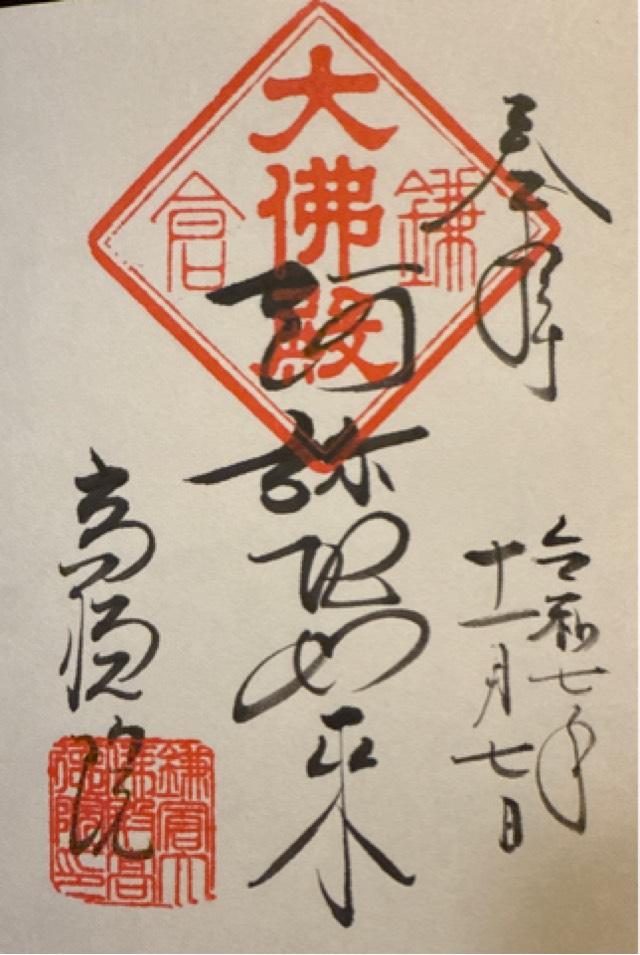 奉拝
令和七年
十一月七日
大佛殿
鎌倉
阿弥陀如来
高徳院
鎌倉大
佛殿高
徳院印